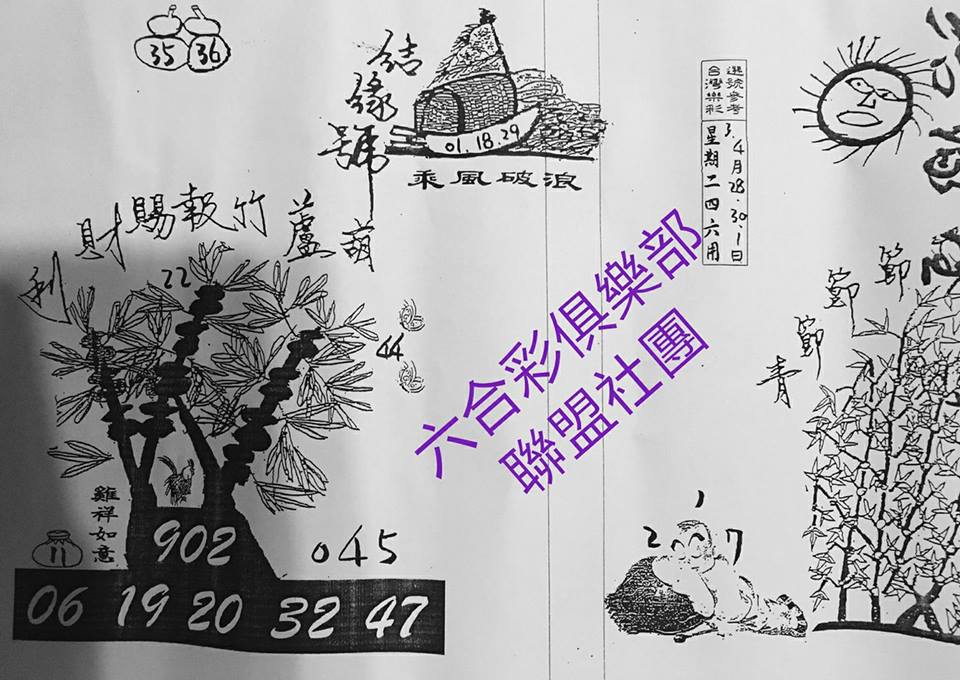 35 36
結緣號
01.18.29
乘風破浪
選號參考
台灣樂彩
3. 4月28.30.1日
星期二四六用
葫蘆竹報賜財利
22
44
雞祥如意
11
902
045
06 19 20 32 47
六合彩俱樂部
聯盟社團
節節節青
1
2 7